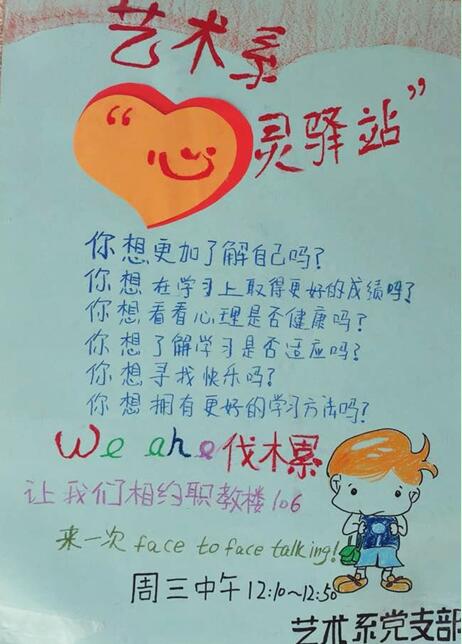 艺术系
“心灵驿站”
你想更加了解自己吗？
你想在学习上取得更好的成绩吗？
你想看看心理是否健康吗？
你想了解学习是否适应吗？
你想寻找快乐吗？
你想拥有更好的学习方法吗？
We are 伐木累
让我们相约职教楼106
来一次 face to face talking!
周三中午 12:10~12:50
艺术系党支部